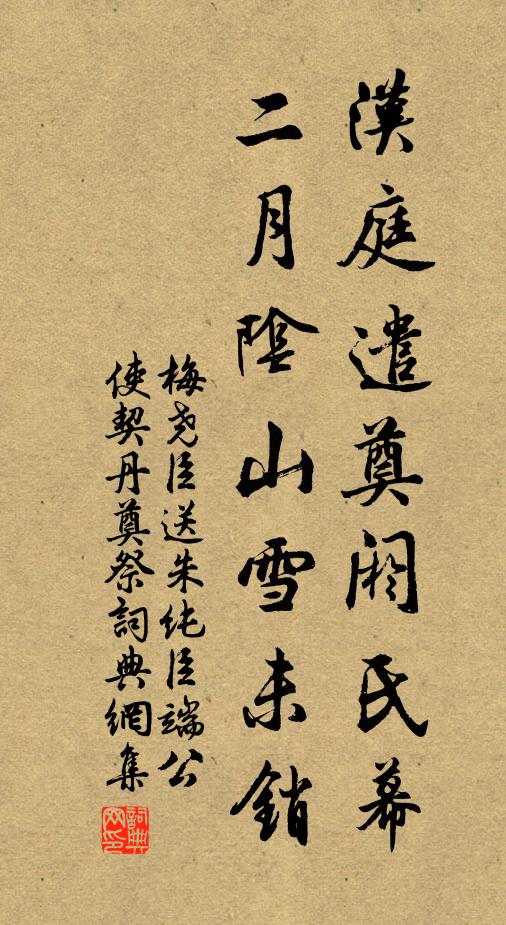 漢庭遣奠阏氏幕
二月陰山雪未銷
梅尭臣送朱纯臣端公
使契丹奠祭詞典網集
詞典
网印